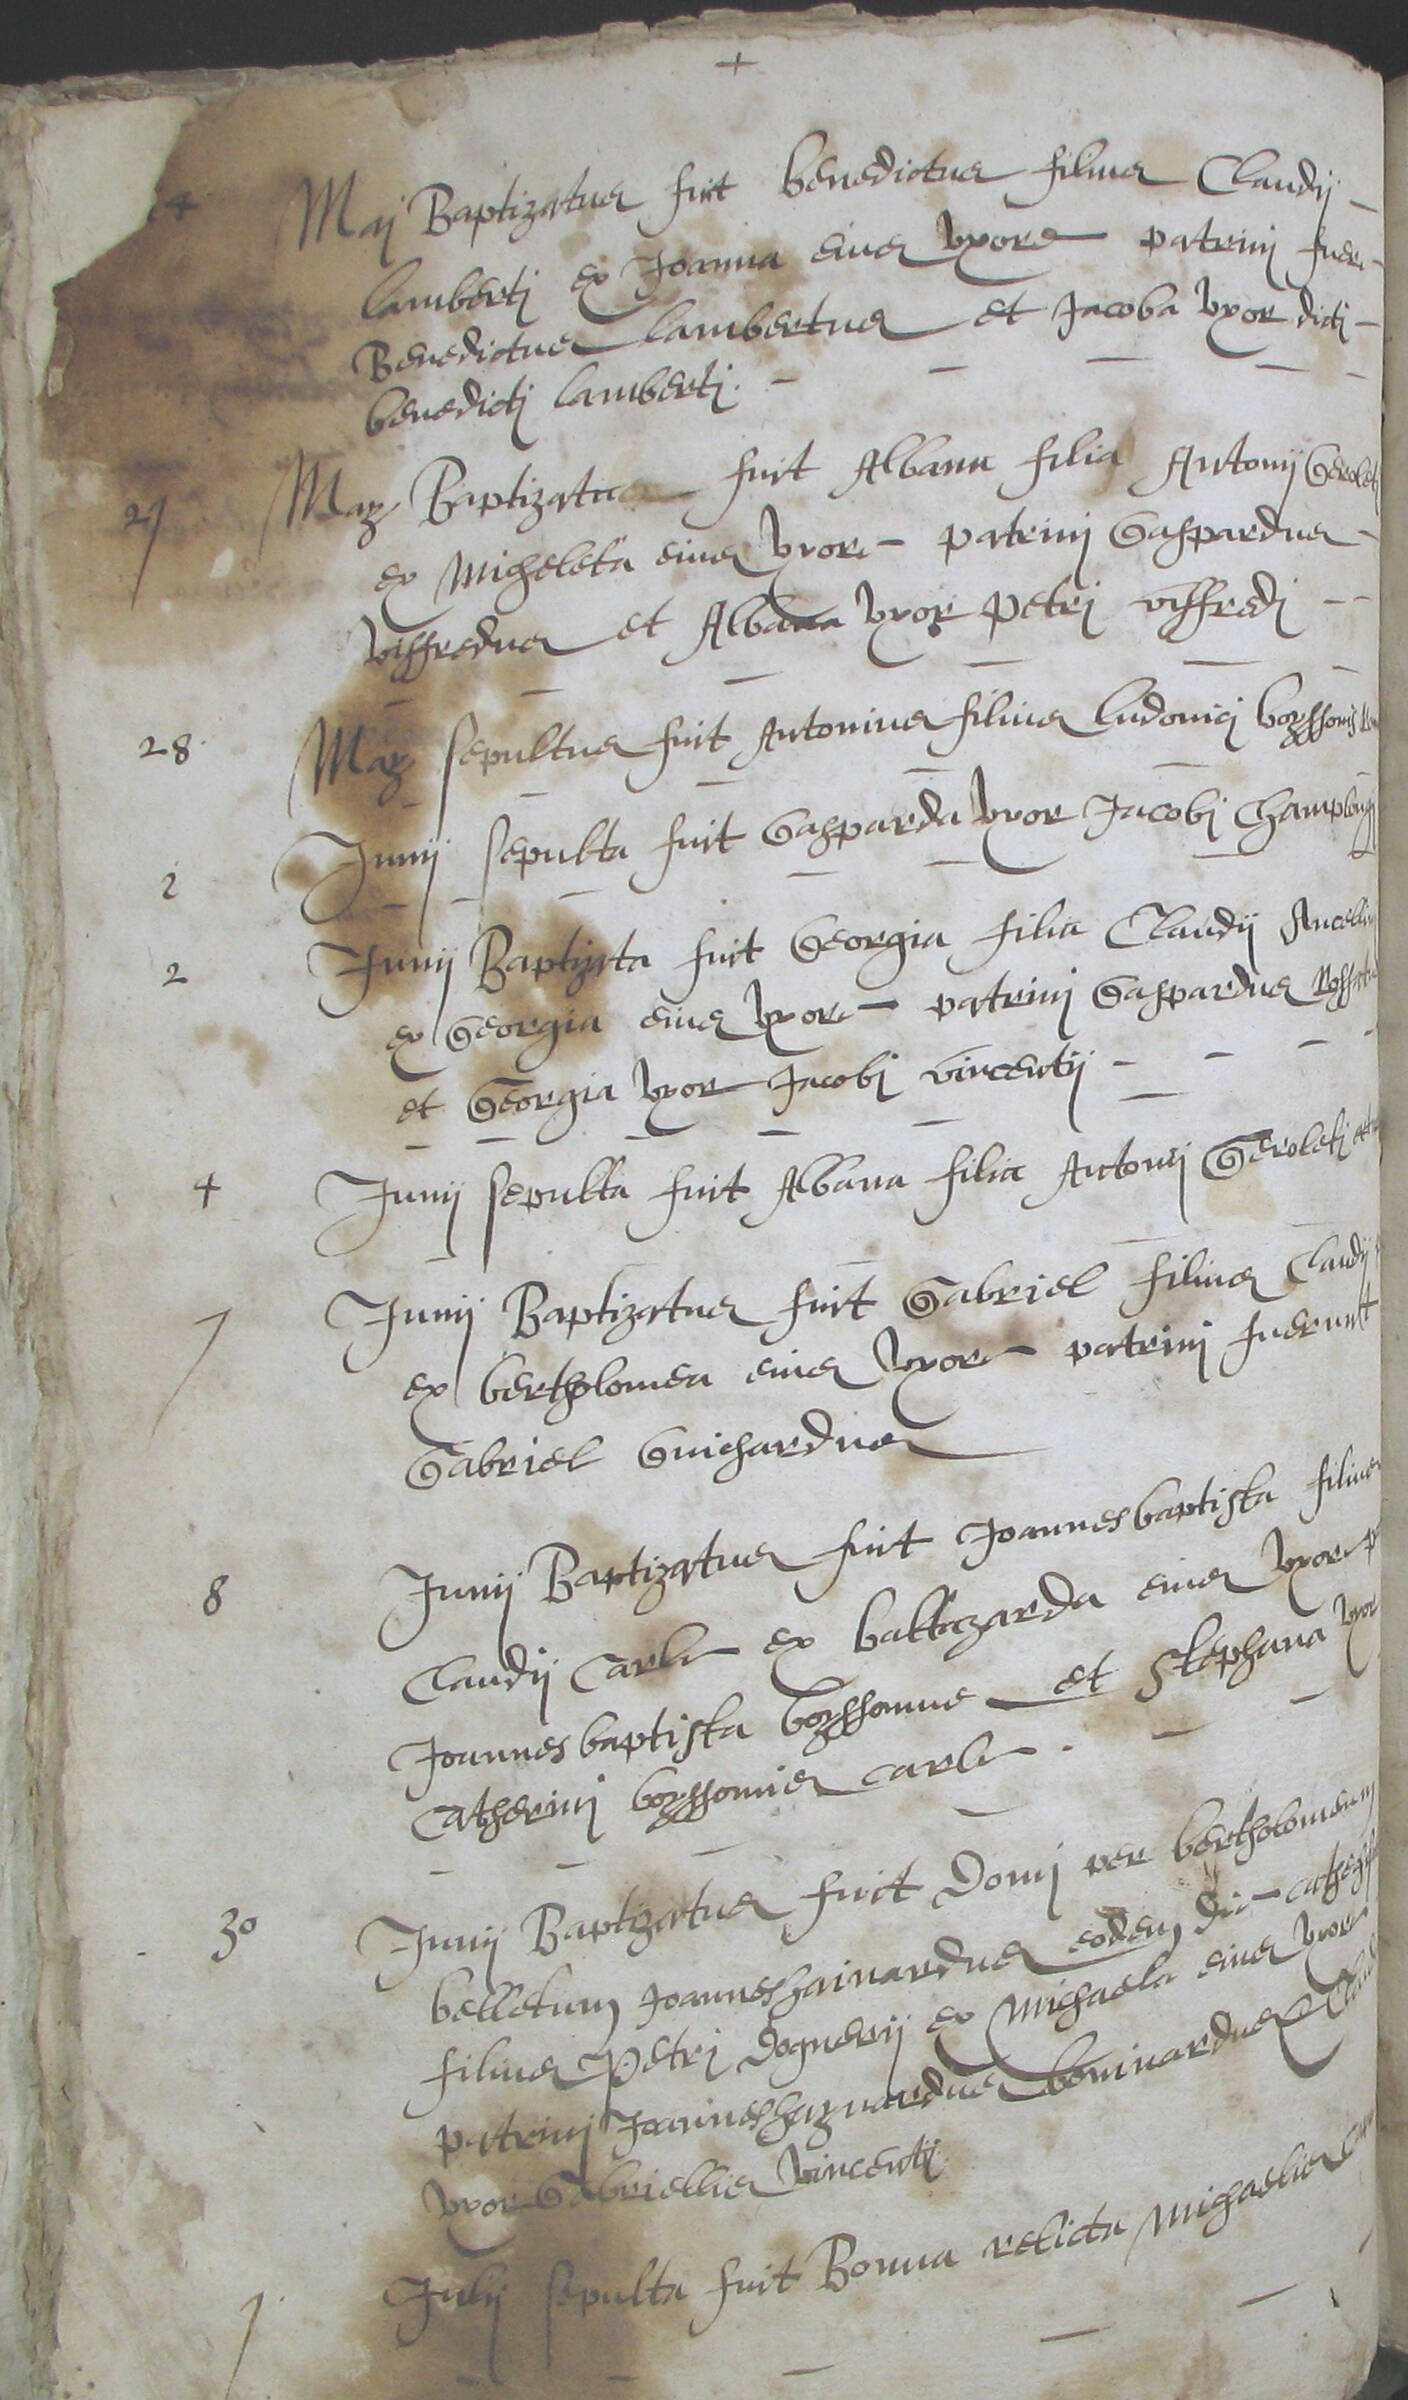 +
4 Maij Baptizatus fuit benedictus filius Claudij
lamberti ex Joanna eius uxore patrini fuer
Benedictus lambertus et Jacoba uxor dicti
benedicti lamberti.
27 May Baptizatus fuit Albana filia Antonij Geroleti
ex Micheleta eius uxore patrini Gaspardus
viffredus et Albana uxor Petri viffredi
28 May sepultus fuit Antonius filius ludovici boyssonis
2 Junij sepulta fuit Gasparda uxor Jacobi
2 Junij Baptizata fuit Georgia filia Claudij Ancellini
ex Georgia eius uxore patrini Gaspardus
et Georgia uxor Jacobi vincentij
4 Junij sepulta fuit Albana filia Antonij Geroleti
7 Junij Baptizatus fuit Gabriel filius Claudij
ex bertholomea eius uxore patrini fuerunt
Gabriel Guichardus
8 Junij Baptizatus fuit Joannesbaptista filius
Claudij Carle ex baltazarda eius uxore
Joannesbaptista boyssonus et Stephana uxor
Catherini boyssonis carle.
30 Junij Baptizatus fuit Domi per bertholomeum
belletum Joanneshainardus eodem die
filius Petri Dognerij ex Michaela eius uxor
patrini Joannesheynardus boninardus
uxor Gabriellis vincentij
7 Julij sepulta fuit Bonna relicta Michaelis